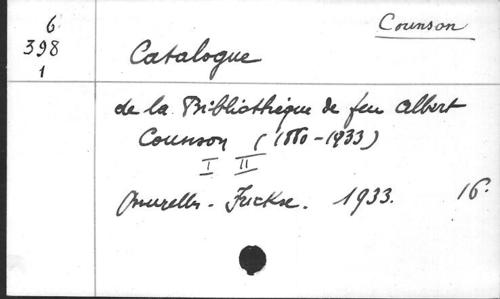 Counson
6
398
1
Catalogue
de la Bibliothèque de feu Albert
Counson (1880-1933)
I II
Bruxelles - Fuckse. 1933. 16°